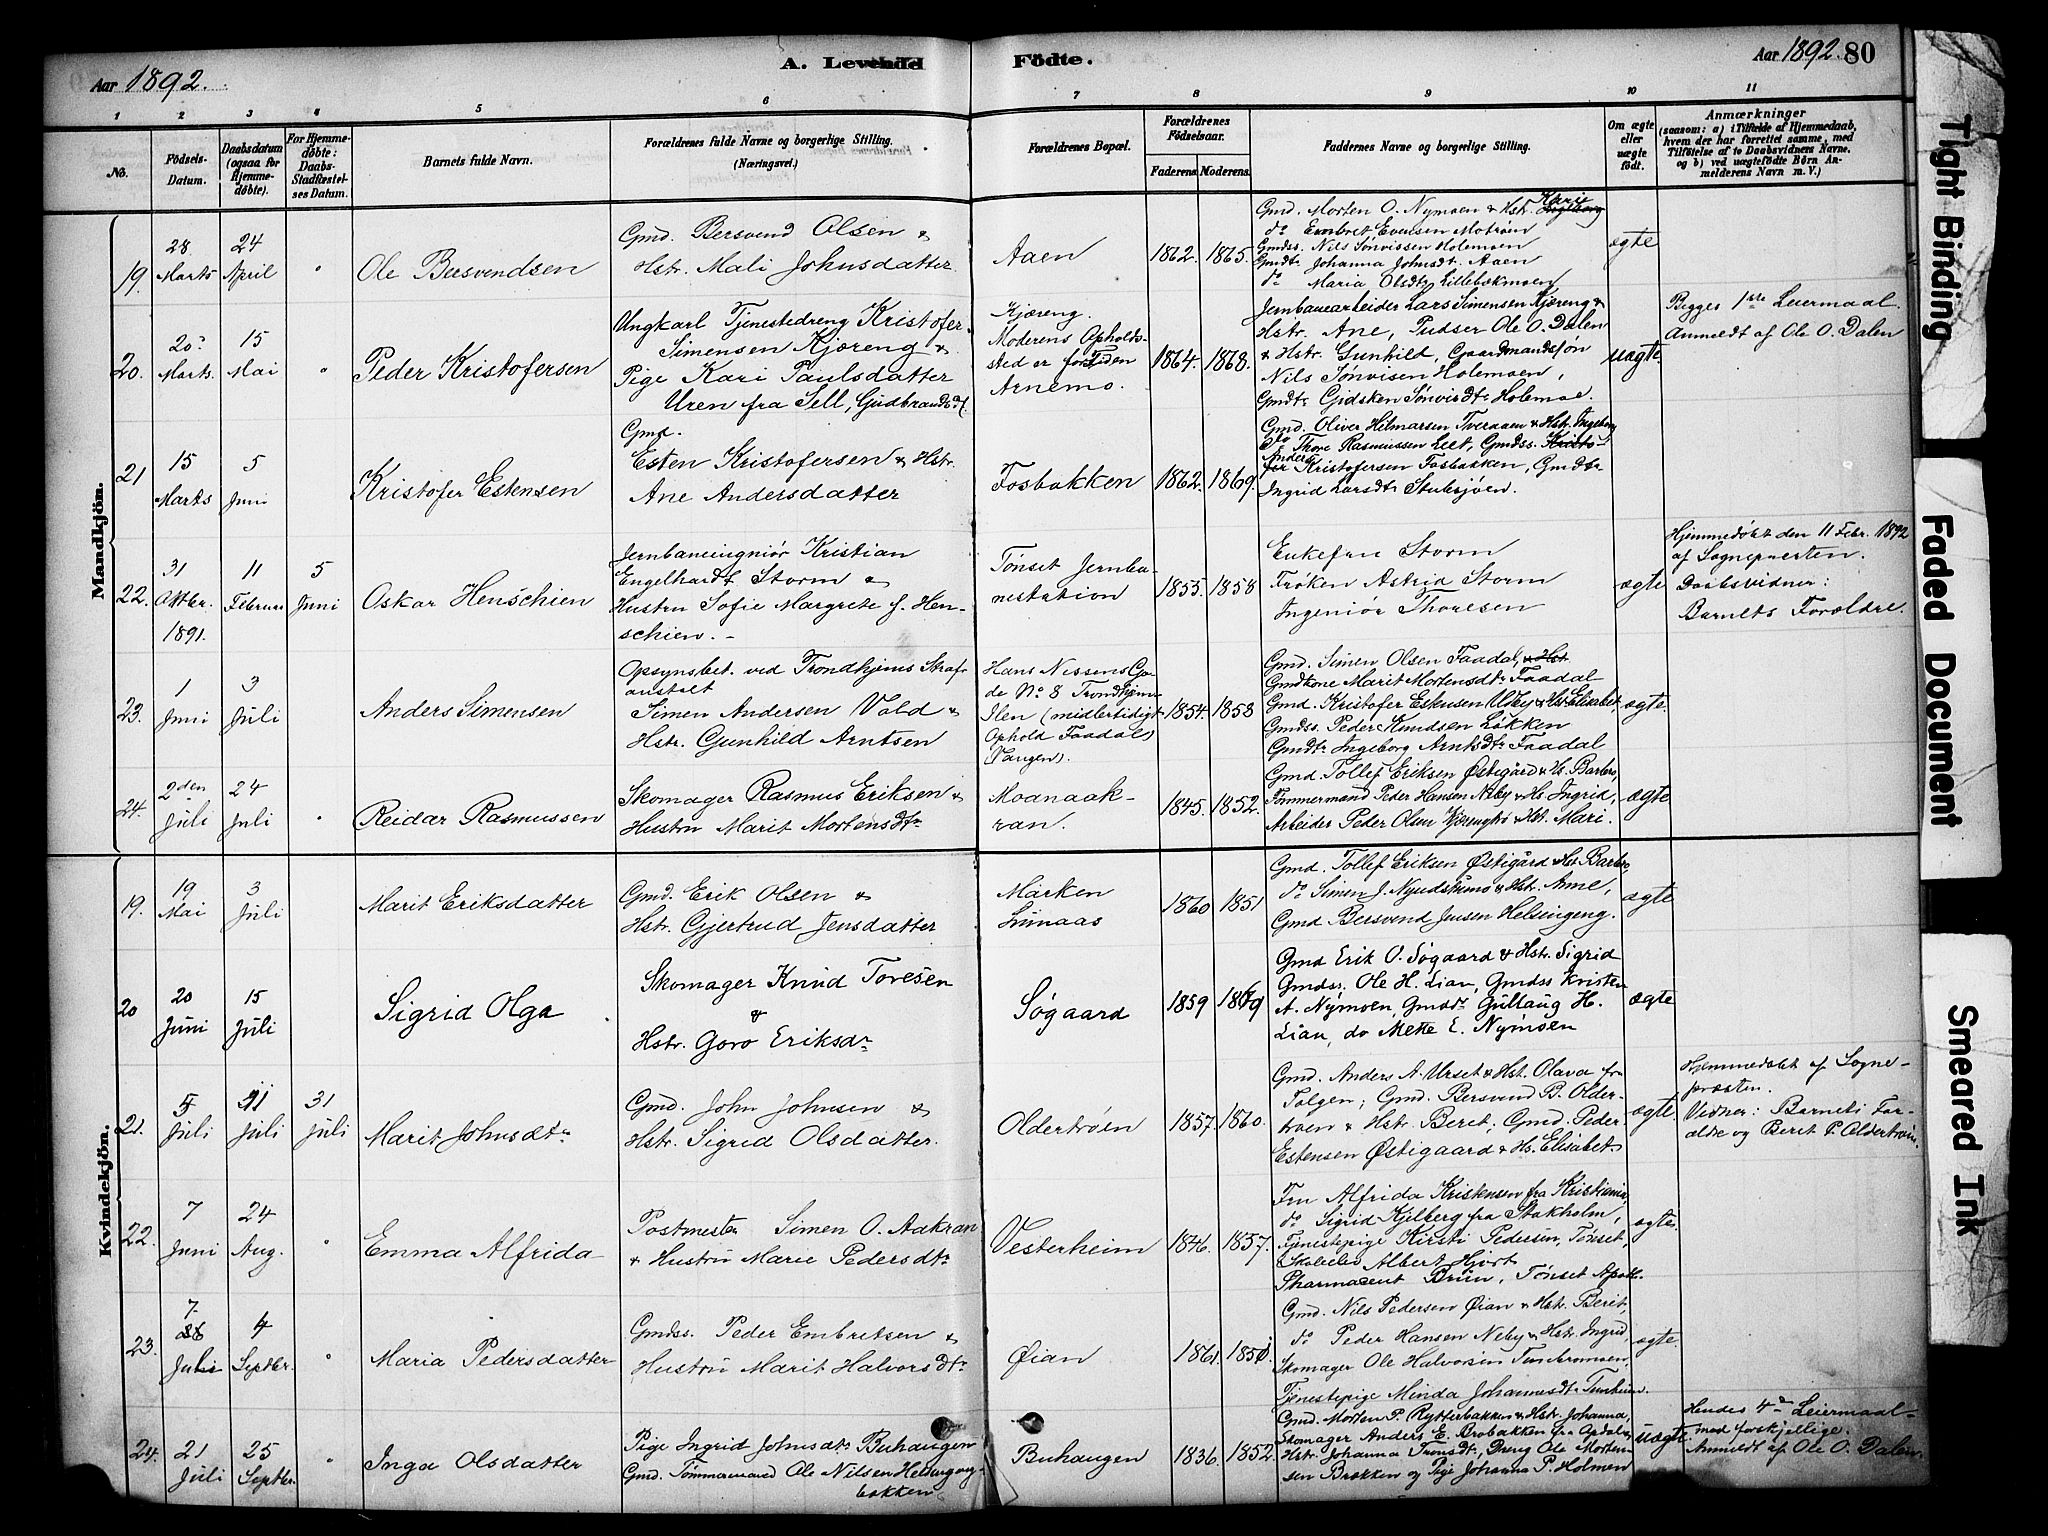 Aar 1892.
A. Levende Födte.
Aar 1892. 80
1 2 3 4 5 6 7 8 9 10 11
No.
Födsels-Datum.
Daabsdatum (ogsaa for Hjemme-döbte).
For Hjemme-döbte: Daabs-Stadfæstel-ses Datum.
Barnets fulde Navn.
Forældrenes fulde Navne og borgerlige Stilling.
(Næringsvei.)
Forældrenes Bopæl.
Forældrenes Födselsaar.
Faderens. Moderens.
Faddernes Navne og borgerlige Stilling.
Om ægte eller uægte födt.
Anmærkninger
(saasom: a) i Tilfælde af Hjemmedaab,
hvem der har forrettet samme, med
Tilföielse af to Daabsvidners Navne,
og b) ved uægtefödte Börn An-
melderens Navn m. V.)
Mandkjön.
19. 28 Marts 24 April "
Ole Bersvendsen
Gmd. Bersvend Olsen &
Hstr. Mali Johnsdatter.
Aaen
1862. 1865.
Gmd. Morten O. Nymoen & Hstr. Karie
do Embret Evensen Motrøen
Gmdss. Nils Sønvissen Holemoen
Gmdtr Johanna Johnsdtr Aaen
do Maria Olsdtr Lillebakmoen
ægte
20. 20 Marts. 15 Mai "
Peder Kristofersen
Ungkarl Tjenestedreng Kristofer
Simensen Kjæreng &
Pige Kari Paulsdatter
Uren fra Sell, Gudbrandsd.
Kjæreng.
Moderens Opholds-
sted er for Tiden
Arnemo.
1864. 1868.
Jernbanearbeider Lars Simensen Kjæreng &
Hstr. Ane, Pudser Ole O. Dalen
& Hstr. Gunhild, Gaardmandssøn
Nils Sønvisen Holemoen,
Gmdtr Gidsken Sønvisdtr Holemoe.
uægte
Begges 1ste Leiermaal.
Anmeldt af Ole O. Dalen
21 15 Marts 5 Juni
Kristofer Estensen
Gmd.
Esten Kristofersen & Hstr.
Ane Andersdatter
Fosbakken
1862. 1869.
Gmd. Oliver Hilmarsen Tveraaen & Hstr. Ingeborg
do Thore Rasmussen Leet, Gmdss. Kristo-
Anders
fer Kristofersen Fosbakken, Gmdtr
Ingrid Larsdtr Stubsjøen.
22. 31 Oktbr. 1891. 11 Februar 5 Juni
Oskar Henschien
Jernbaneingeniør Kristian
Engelhardt Storm &
Hustru Sofie Margrete f. Hen-
schien. -
Tønset Jernba-
nestation
1855. 1858
Enkefru Storm
Frøken Astrid Storm
Ingeniør Thoresen
ægte
Hjemmedøbt den 11 Febr. 1892
af Sognepresten.
Daabsvidner:
Barnets Forældre.
23. 1 Juni 3 Juli
Anders Simensen
Opsynsbet. ved Trondhjems Straf-
anstalt
Simen Andersen Vold &
Hstr. Gunhild Arntsen
Hans Nissens Ga-
de No 8 Trondhjem
Ilen (midlertidigt
Ophold Faadal)
(Vangen).
1854. 1858
Gmd. Simen Olsen Faadal, & Hst
Gmdkone Marit Mortensdtr Faadal
Gmd. Kristofer Estensen Urby & Hst Elisabet
Gmdss. Peder Knudsen Løkken
Gmdtr Ingeborg Arntsdtr Faadal
ægte.
24. 2den Juli 24 Juli "
Reidar Rasmussen
Skomager Rasmus Eriksen &
Hustru Marit Mortensdtr
Moanaak-
ran.
1845. 1852.
Gmd. Tollef Eriksen Østigård & Hs. Barbro,
Tømmermand Peder Hansen Neby & Hs. Ingrid,
Arbeider Peder Olsen Kjærengmo & Hst. Mari.
ægte
Kvindekjön.
19. 19 Mai 3 Juli
Marit Eriksdatter
Gmd. Erik Olsen &
Hstr. Gjertrud Jensdatter
Marken
Lunaas
1860 1851
Gmd. Tollef Eriksen Østigård & Hs. Barbro,
do Simen J. Nyudstumo & Hstr. Anne,
Gmd. Bersvend Jensen Helsingeng.
ægte
20 20 Juni 15 Juli
Sigrid Olga
Skomager Knud Toresen
&
Hstr. Goro Eriksdr
Søgaard
1859 1869
Gmd Erik O. Søgaard & Hstr. Sigrid
Gmdss. Ole H. Lian, Gmdss Kristen
A. Nymoen, Gmdr. Gullaug H.
Lian, do Mette E. Nymoen
ægte
21. 5 Juli 11 Juli 31 Juli
Marit Johnsdtr
Gmd. John Johnsen &
Hstr. Sigrid Olsdatter.
Oldertrøen
1857. 1860.
Gmd. Anders A. Urset & Hst. Olava fra
Tolgen; Gmd. Bersvend B. Older-
trøen & Hstr. Beret; Gmd. Peder
Estensen Østigaard & Hs. Elisabet.
ægte.
Hjemmedøbt af Sogne-
præsten.
Vidner: Barnets For-
ældre og Beret P. Oldertrøen.
22. 7 Juni 24 Aug. "
Emma Alfrida
Postmester Simen O. Aakran
& Hustru Marie Pedersdtr
Vesterheim
1846. 1857.
Fru Alfrida Kristensen fra Kristiania,
do Sigrid Kjelberg fra Stokholm,
Tjenestepige Kirsti Pedersen, Tønset,
Skoleelev Albert Hjort
Pharmaceut Brun, Tønset Apoth.
ægte.
23. 7 Juli 4 Septbr. "
Maria Pedersdatter
Gmdss. Peder Embretsen &
Hustru Marit Halvorsdtr
Øian
1861. 1850.
Gmd. Nils Pedersen Øian & Hstr. Berit,
do Peder Hansen Neby & Hstr. Ingrid,
Skomager Ole Halvorsen Tunstrømoen,
Tjenestepige Minda Johannesdtr Tunheim.
ægte
24. 21 Juli 25 Septbr. "
Inga Olsdatter
Pige Ingrid Johnsdtr Buhaugen
Gmd. Tømmermand Ole Nilsen Helsingeng-
bakken
Buhaugen
1836. 1852.
Gmd. Morten P. Rytterbakken & Hstr. Johanna,
Skomager Anders E. Brobakken fra Opdal &
Hstr Johanna Tronsdtr, Dreng Ole Morten-
sen Brækken og Pige Johanna P. Holmen
uægte
Hendes 4de Leiermaal
med forskjellige.
Anmeldt af Ole O. Dalen.
Tight Binding
Faded Document
Smeared Ink